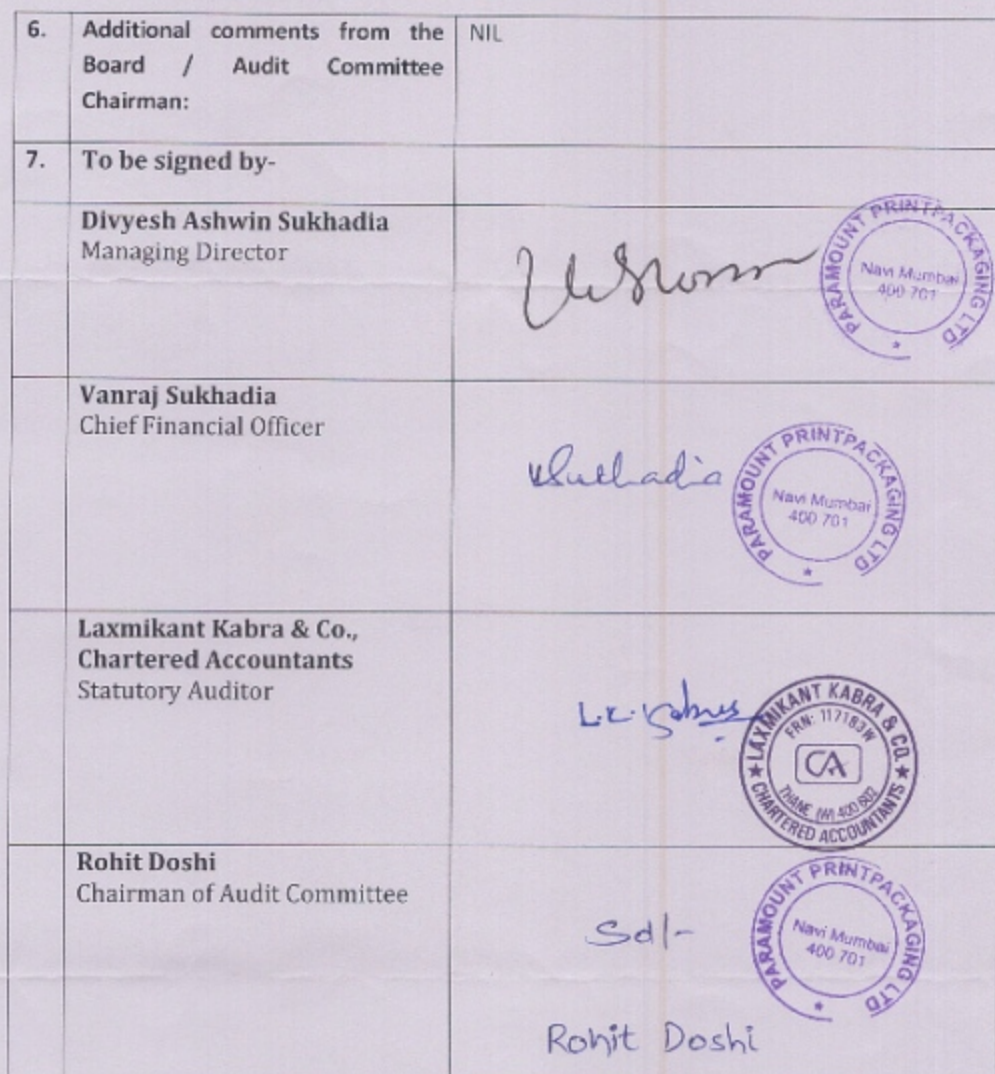 6. Additional comments from the NIL
Board / Audit Committee
Chairman:
7. To be signed by-
Divyesh Ashwin Sukhadia
Managing Director
PARAMOUNT PRINTPACKAGING LTD
Navi Mumbai
400 701
*
Vanraj Sukhadia
Chief Financial Officer
VSukhadia
PARAMOUNT PRINTPACKAGING LTD
Navi Mumbai
400 701
*
Laxmikant Kabra & Co.,
Chartered Accountants
Statutory Auditor
L.K. Kabra
LAXMIKANT KABRA & CO.
FRN: 117183W
CA
THANE (W) 400 602
★ CHARTERED ACCOUNTANTS ★
Rohit Doshi
Chairman of Audit Committee
Sd/-
PARAMOUNT PRINTPACKAGING LTD
Navi Mumbai
400 701
*
Rohit Doshi